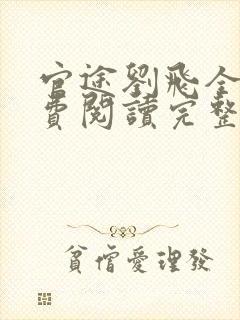 官途劉飛全
費閱讀完整
貧僧愛理發